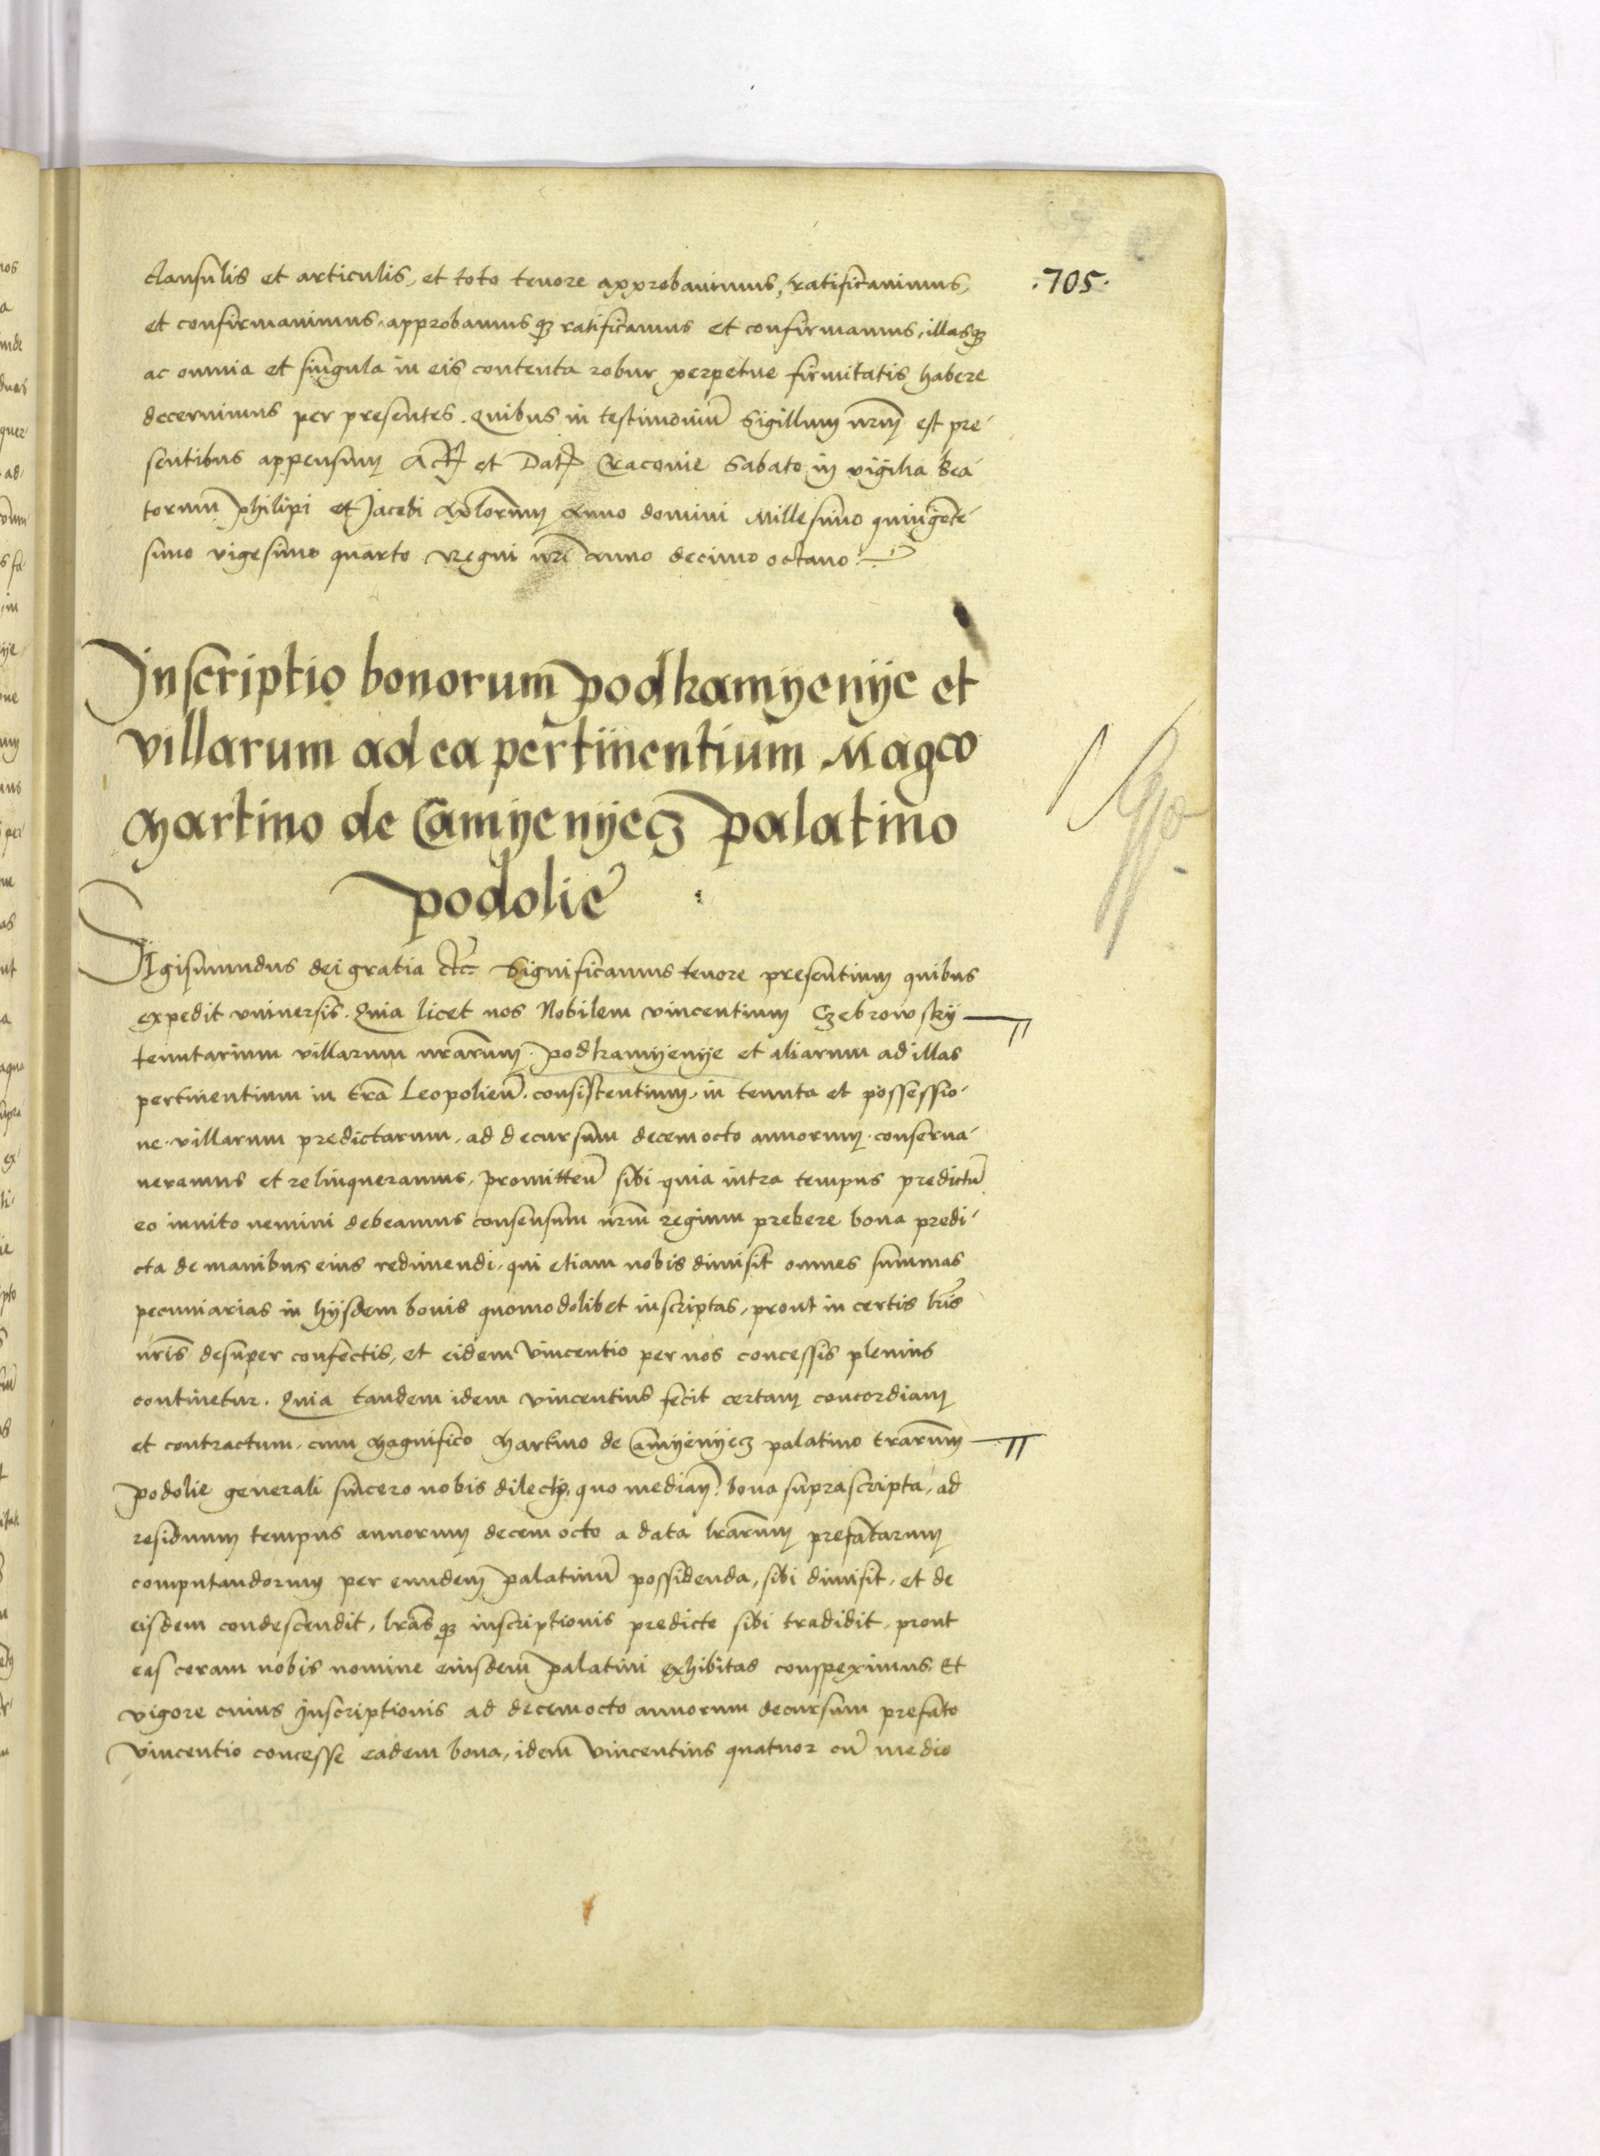 clausulis et articulis, et toto tenore approbavimus, ratificavimus,
·705·
et confirmavimus, approbamusqȝ ratificamus et confirmamus, illasqȝ
ac omnia et singula in eis contenta robur perpetue firmitatis habere
decernimus per presentes. Quibus in testimoniū Sigillum nrm̄ est pre-
sentibus appensum Act et Dat Cracovie Sabato in vigilia bea-
torum philipi et Jacobi Aplorum anno domini Millesimo quingēte-
simo vigesimo quarto Regni nr̄i anno decimo octavo
Inscriptio bonorum podkamyenye et
villarum ad ea pertinentium Magco
Martino de Camyenyecȝ palatino
podolie
SIgismundus dei gratia etc̄ Significamus tenore presentium quibus
expedit vniversis. Quia licet nos Nobilem vincentium Czebrowsky
tenutarium villarum nrarum podkamyenye et aliarum ad illas
pertinentium in tr̄a Leopolien̄. consistentium, in tenuta et possessio-
ne villarum predictarum, ad decursum decemocto annorum conserva-
veramus et relinqueramus, promitten̄ sibi quia intra tempus predictū
eo invito nemini debeamus consensum nrm̄ regium prebere bona predi-
cta de manibus eius redimendi, qui etiam nobis dimisit omnes summas
pecuniarias in hysdem bonis quomodolibet inscriptas, prout in certis lr̄is
nr̄is desuper confectis, et eidem Vincentio per nos concessis plenius
continetur. Quia tandem idem vincentius fecit certam concordiam
et contractum, cum Magnifico Martino de Camyenyecȝ palatino trarum
podolie generali sincero nobis dilecto, quo median̄. bona suprascripta, ad
residuum tempus annorum decemocto a data lr̄arum prefatarum
computandorum per eundem palatinū possidenda, sibi dimisit, et de
eisdem condescendit, lr̄asqȝ inscriptionis predicte sibi tradidit, prout
eas coram nobis nomine eiusdem palatini exhibitas conspeximus, Et
vigore cuius Inscriptionis ad decemocto annorum decursum prefato
Vincentio concesse eadem bona, idem Vincentius quatuor cū medio